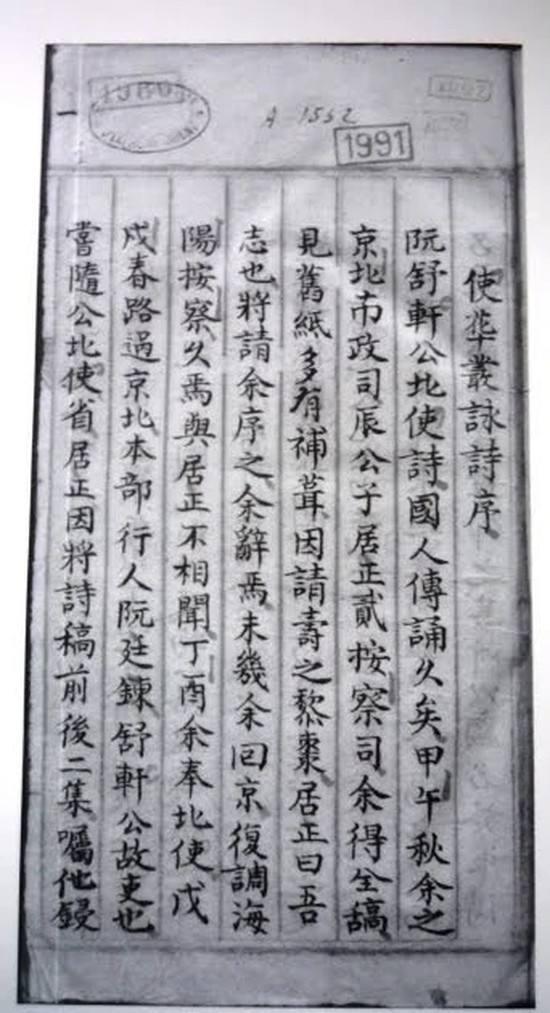 A 1552
1991
使華叢詠詩序
阮舒軒公北使詩國人傳誦久矣甲午秋余之
京北布政司辰公子居正貳按察司余得全稿
見舊紙多有補葺因請壽之棃棗居正曰吾
志也將請余序之余辭焉未幾余回京復調海
陽按察久焉與居正不相聞丁酉余奉北使戊
戌春路過京北本部行人阮廷鍊舒軒公故吏也
嘗隨公北使省居正因將詩稿前後二集囑他鋟